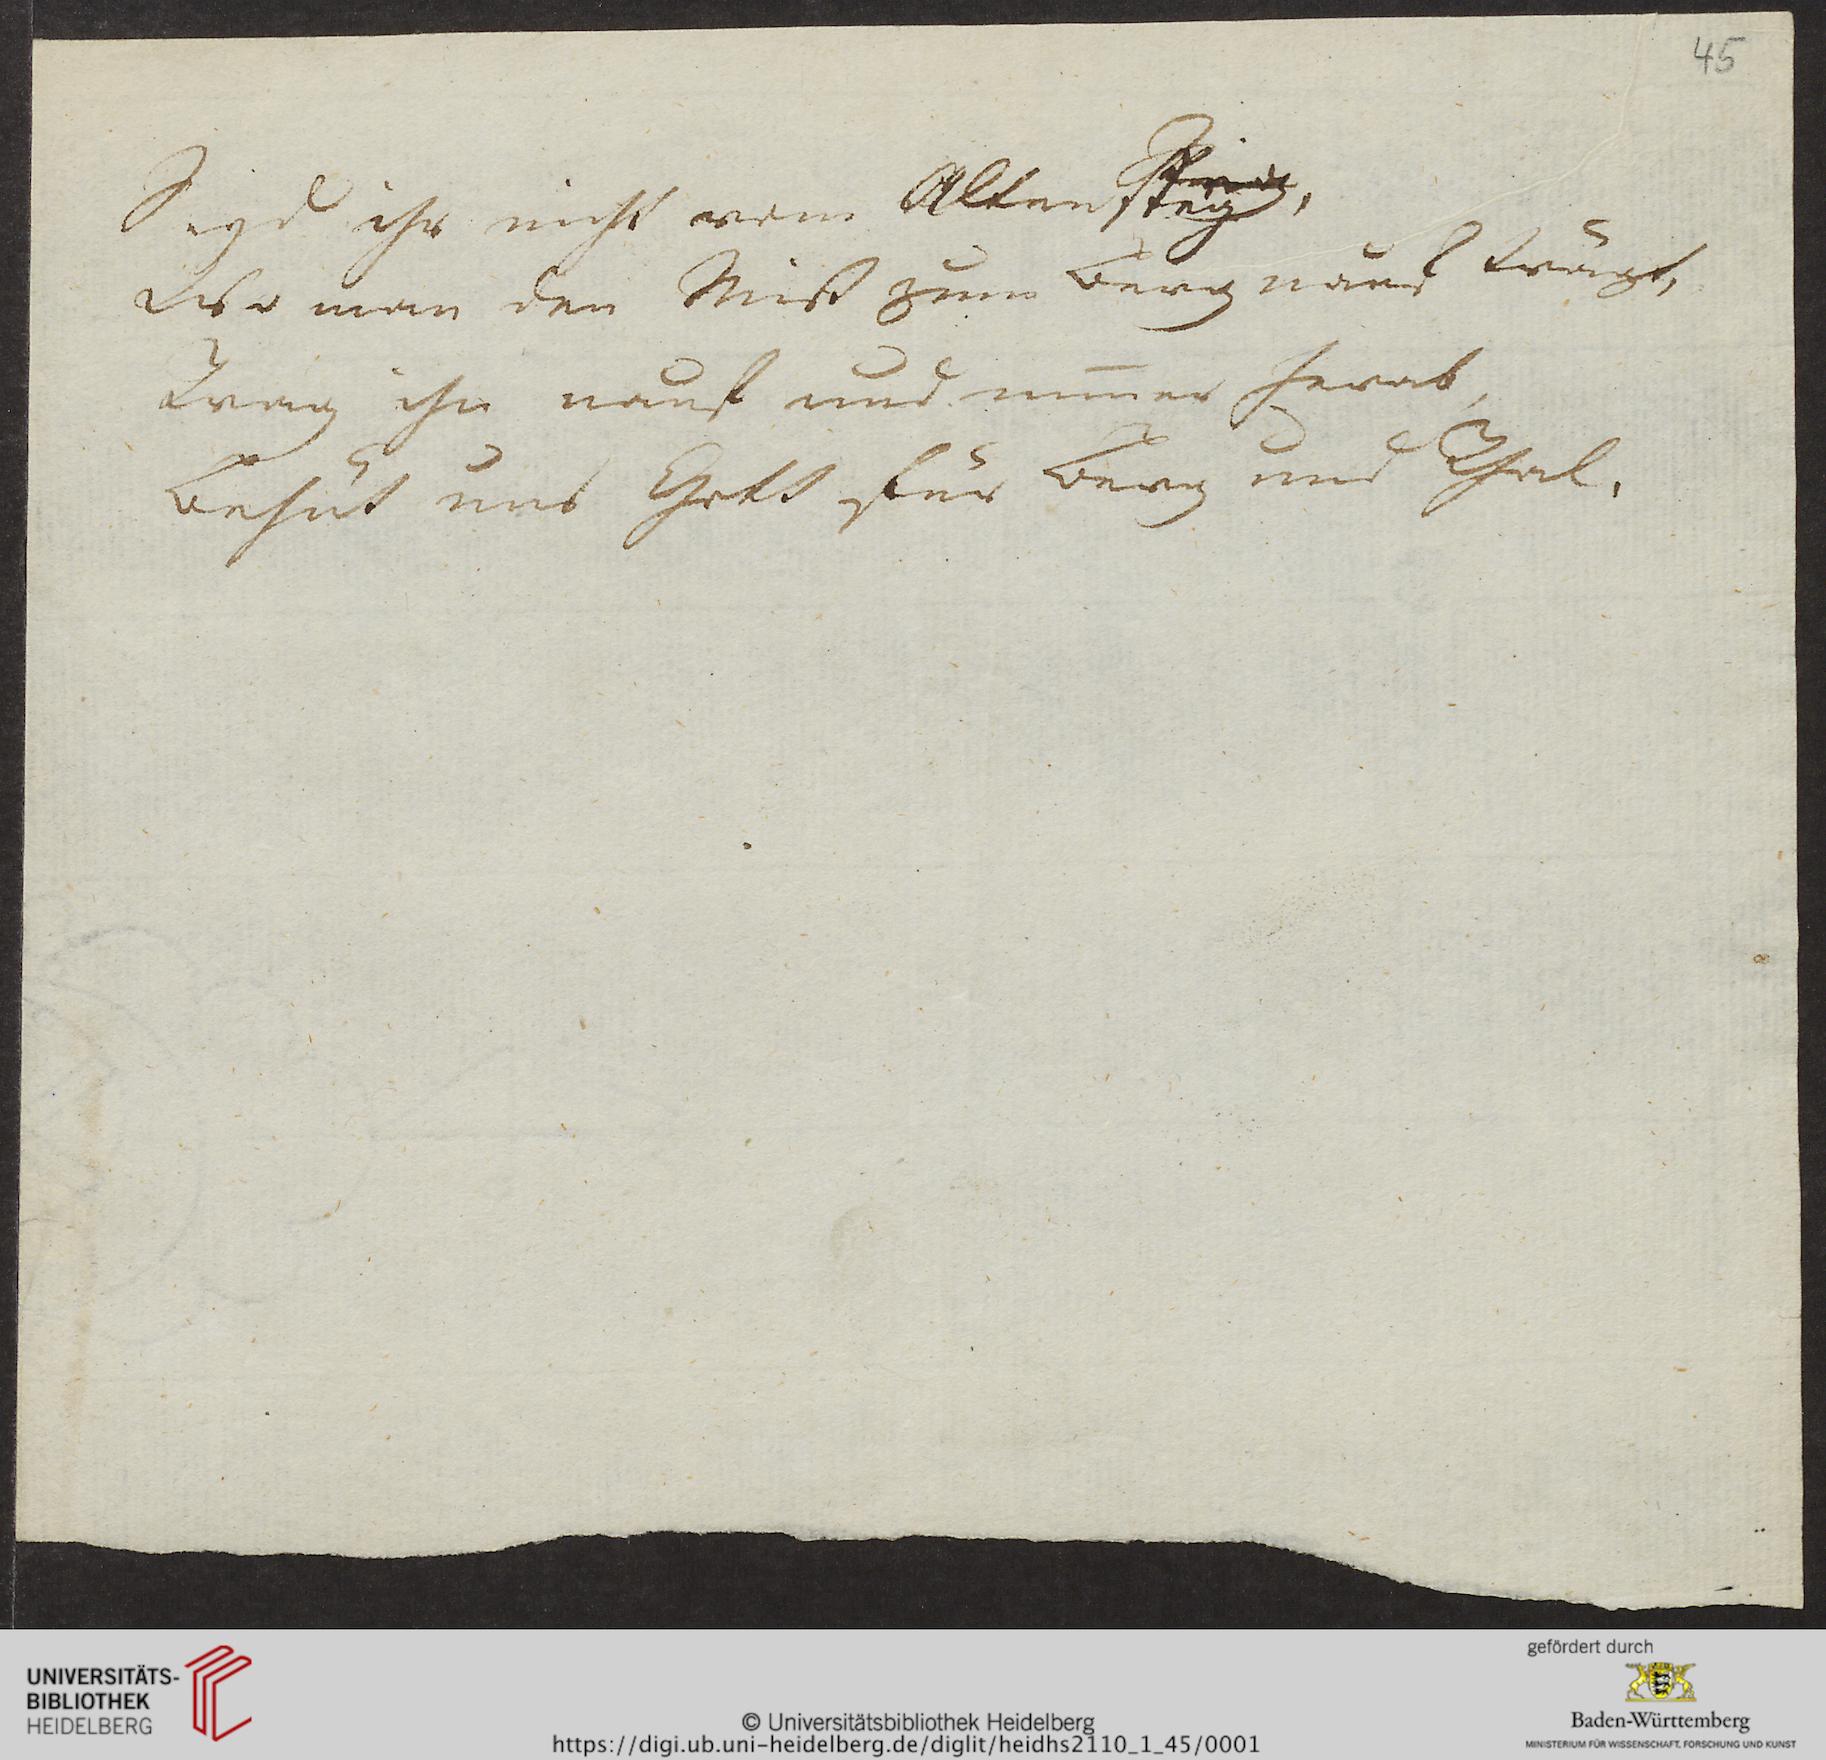 45
Seyd ihr nicht vom Altensteig,
Wo man den Mist zum Berg nauf trägt,
Trag ihn nauf und nim̅er herab,
Behüt uns Gott für Berg und Thal.
UNIVERSITÄTS-
BIBLIOTHEK
HEIDELBERG
© Universitätsbibliothek Heidelberg
https://digi.ub.uni-heidelberg.de/diglit/heidhs2110_1_45/0001
gefördert durch
Baden-Württemberg
MINISTERIUM FÜR WISSENSCHAFT, FORSCHUNG UND KUNST